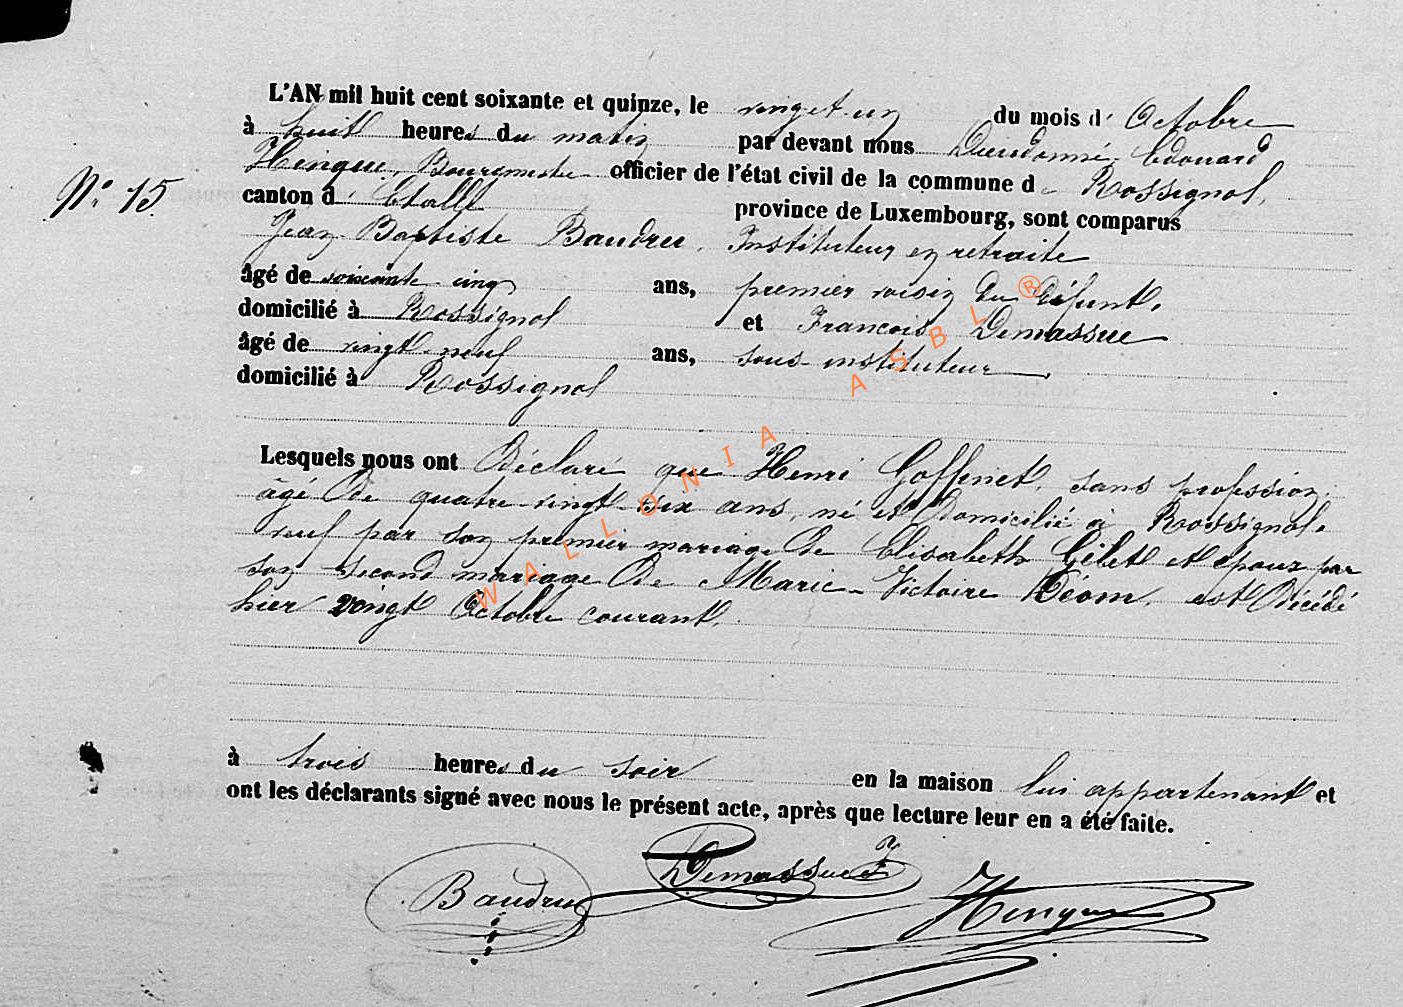 L'AN mil huit cent soixante et quinze, le vingt-un du mois d' Octobre
à huit heures du matin par devant nous Dieudonné Edouard
Hingue, Bourgmestre officier de l'état civil de la commune de Rossignol,
N° 15.
canton d' Etalle province de Luxembourg, sont comparus
Jean Baptiste Baudru, Instituteur en retraite
âgé de soixante cinq ans, premier voisin du défunt,
domicilié à Rossignol et François Demassue
âgé de vingt-neuf ans, sous-instituteur
domicilié à Rossignol
Lesquels nous ont Déclaré que Henri Goffinet, sans profession,
âgé de quatre-vingt-six ans, né et domicilié à Rossignol,
veuf par son premier mariage de Elisabeth Gilet et époux par
son second mariage de Marie-Victoire Déom, est décédé
hier vingt Octobre courant,
à trois heures du soir en la maison lui appartenant et
ont les déclarants signé avec nous le présent acte, après que lecture leur en a été faite.
Baudru Demassue Hingue
WALLONIA ASBL ®